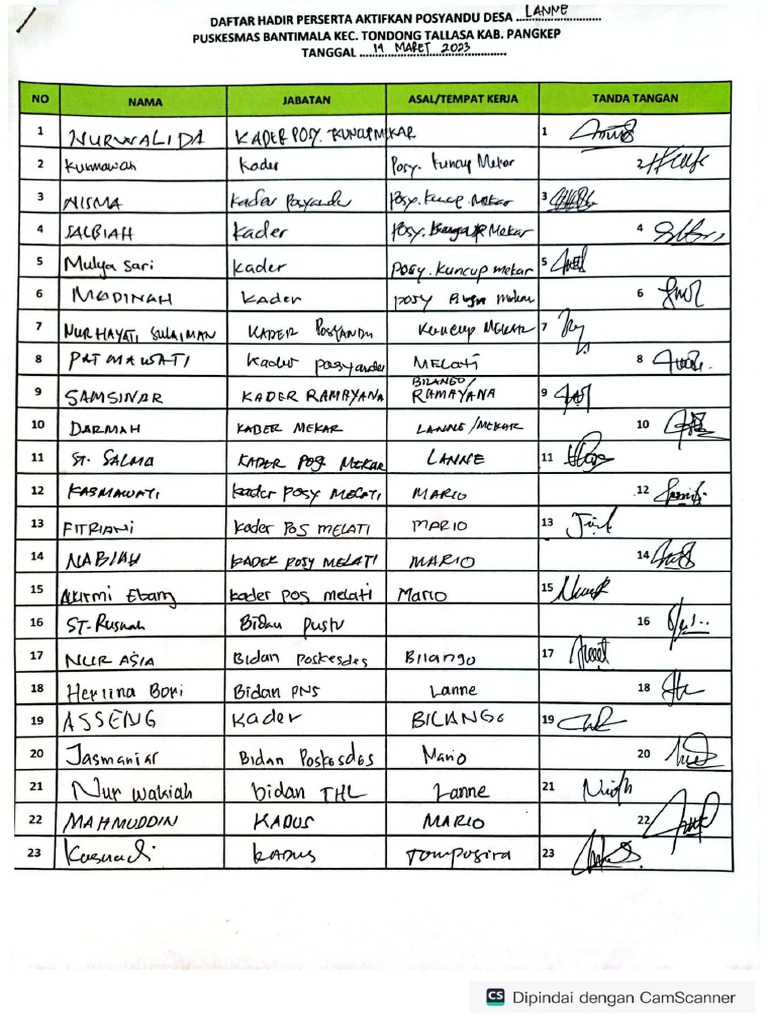 DAFTAR HADIR PERSERTA AKTIFKAN POSYANDU DESA LANNE
PUSKESMAS BANTIMALA KEC. TONDONG TALLASA KAB. PANGKEP
TANGGAL 19 MARET 2023
NO NAMA JABATAN ASAL/TEMPAT KERJA TANDA TANGAN
1 NURWALIDA KADER POSY. KUNCUP MEKAR 1
2 Kusmawah Kader Posy. Kuncup Mekar 2
3 NISMA Kader Posyandu Posy. Kuncup Mekar 3
4 SALBIAH Kader Posy. Mekar 4
5 Mulya Sari Kader Posy. Kuncup mekar 5
6 MADINAH Kader posy mekar 6
7 NURHAYATI SULAIMAN KADER POSYANDU Kuncup MEKAR 7
8 PATMAWATI Kader posyandu MELATI 8
9 SAMSINAR KADER RAMAYANA BILANGO/ RAMAYANA 9
10 DARMAH KADER MEKAR LANNE/MEKAR 10
11 ST. SALMA KADER POS MEKAR LANNE 11
12 KASMAWATI kader posy MELATI MARIO 12
13 FITRIANI kader POS MELATI MARIO 13
14 NABIAH KADER POSY MELATI MARIO 14
15 Ebang kader pos melati Mario 15
16 ST. Rusnah Bidan pustu 16
17 NUR ASIA Bidan Poskesdes Bilango 17
18 Herlina Bori Bidan PNS Lanne 18
19 ASSENG Kader BILANGO 19
20 Jasmaniar Bidan Poskesdes Mario 20
21 Nur wakiah bidan THL Lanne 21
22 MAHMUDDIN KADUS MARIO 22
23 Kusnadi KADUS 23
CS Dipindai dengan CamScanner